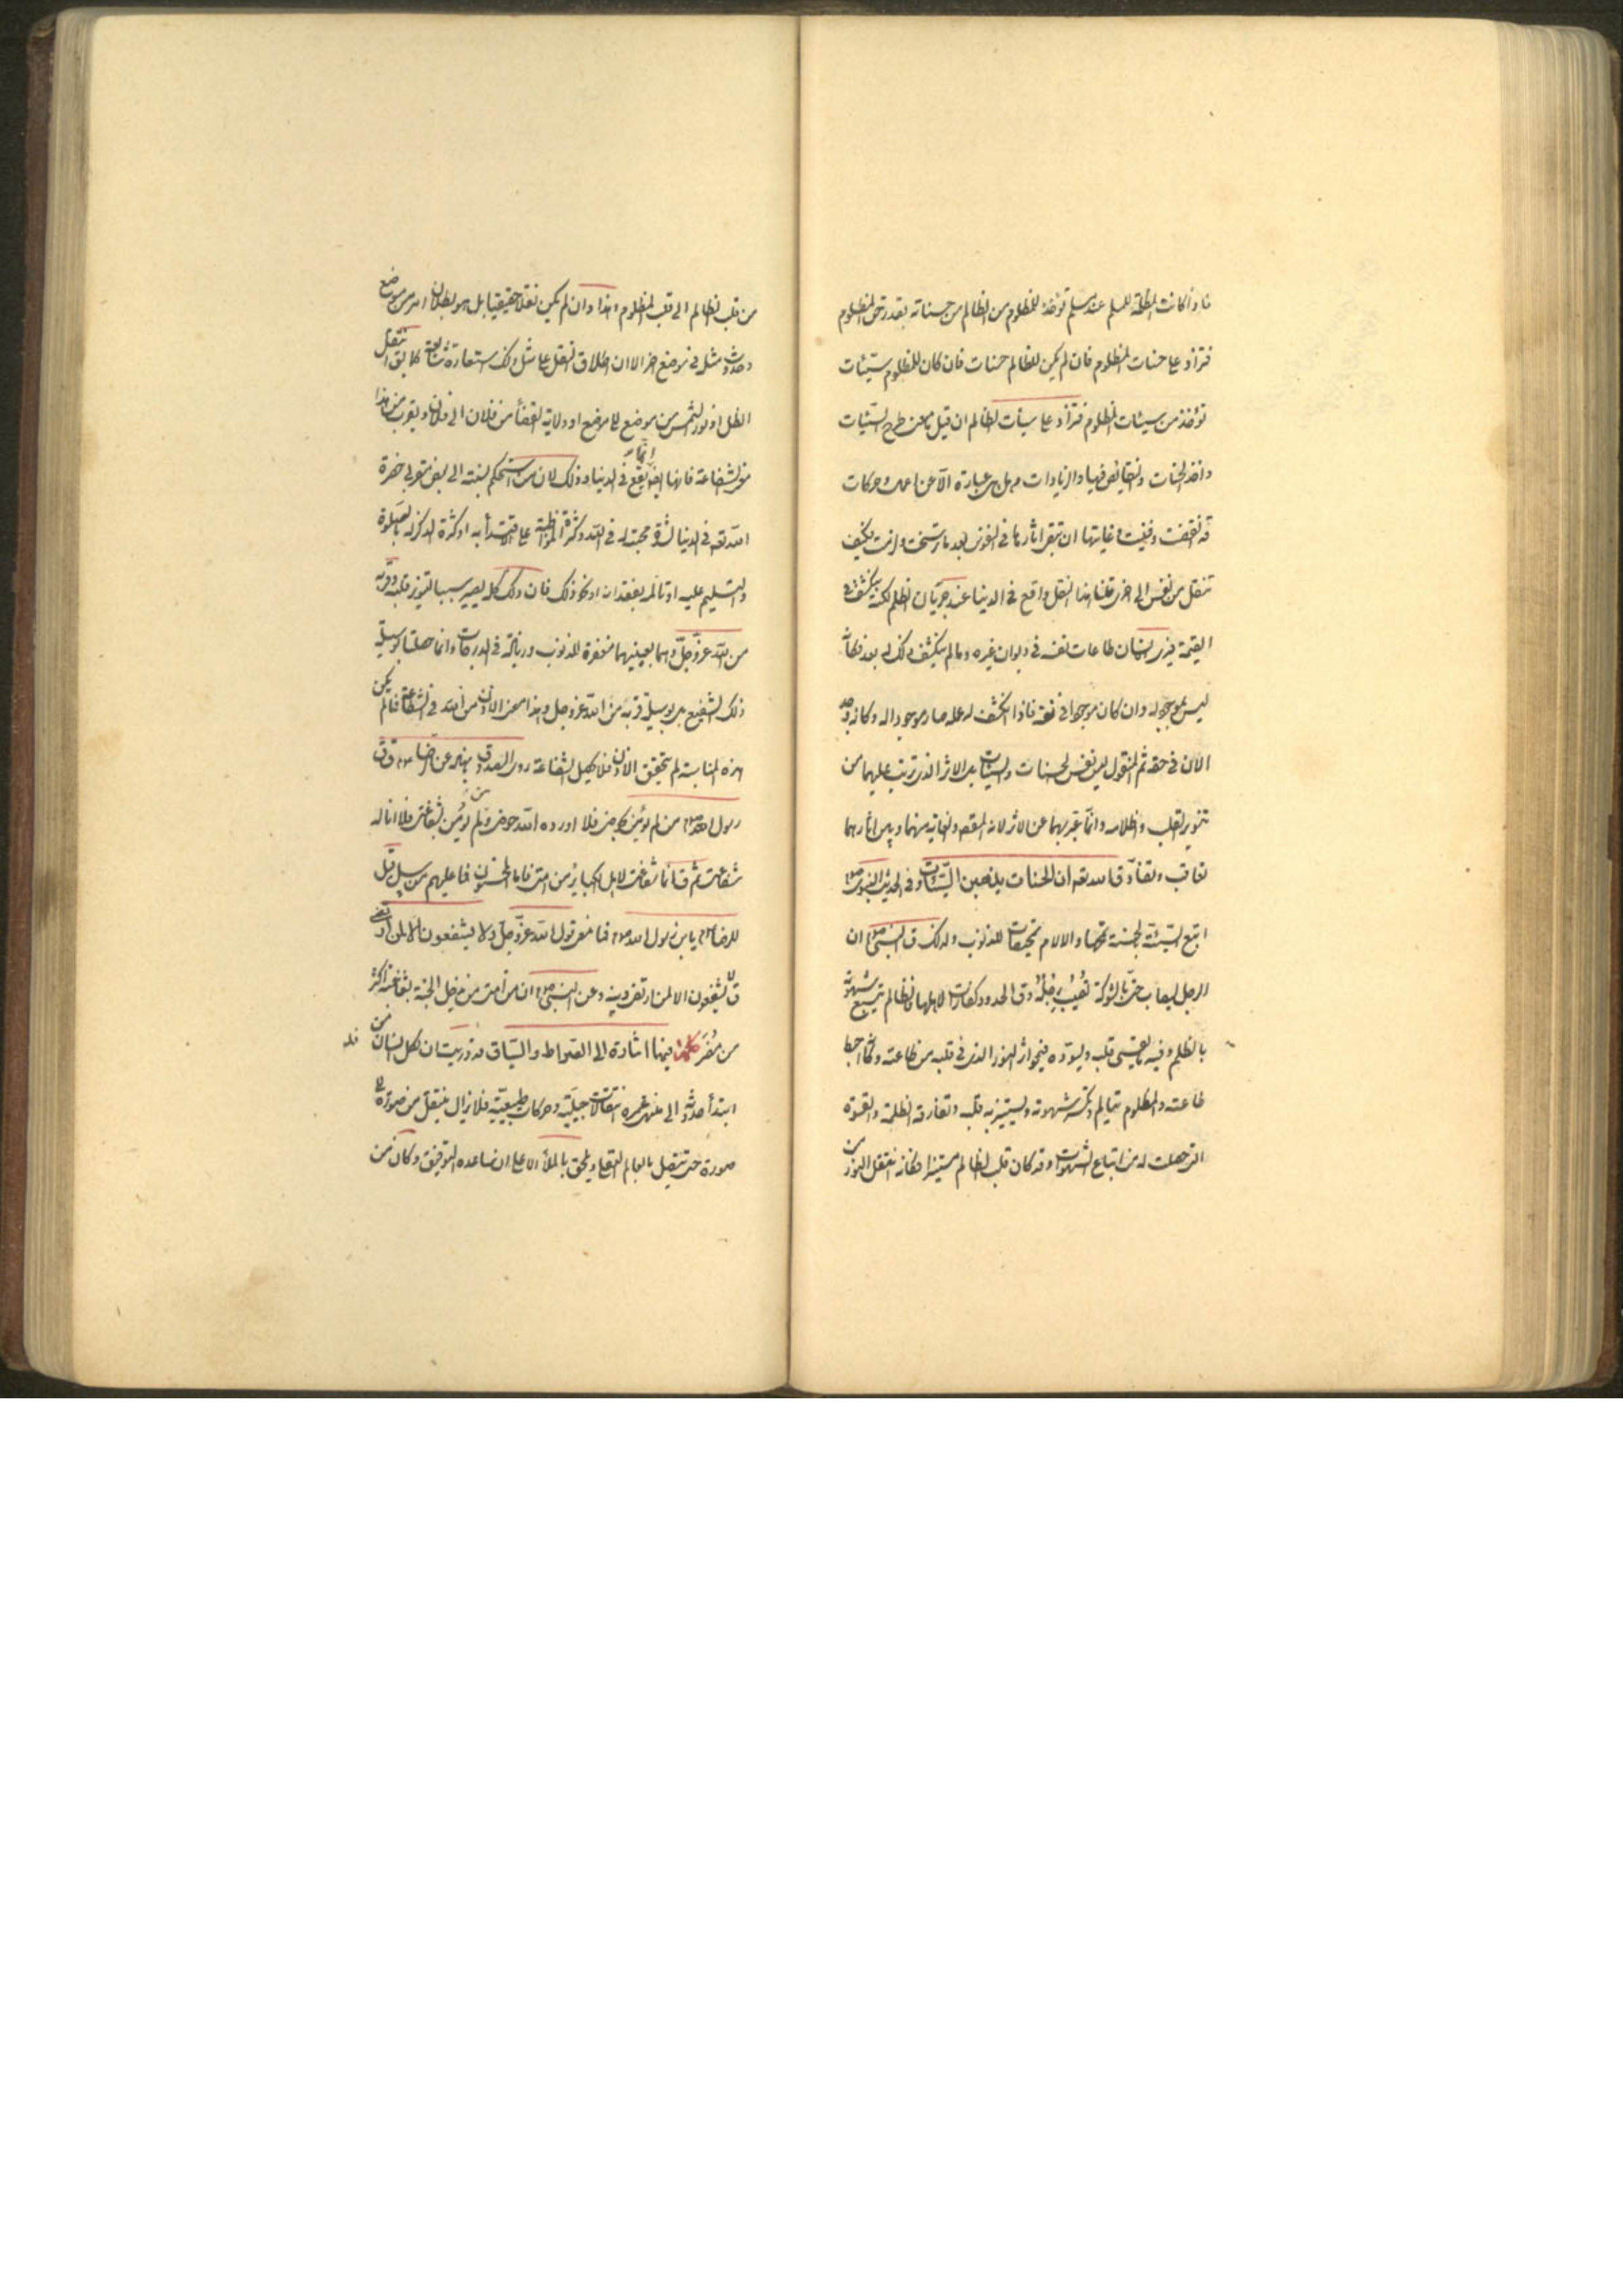 فاذا كانت المظلمة للمسلم عند مسلم تؤخذ للمظلوم من الظالم من حسناته بقدر حق المظلوم
فتزاد على حسنات المظلوم فان لم يكن للظالم حسنات فان كان للمظلوم سيّئات
تؤخذ من سيئات المظلوم فتزاد على سيئات الظالم ان قيل ما معنى طرح السّيّئات
واخذ الحسنات والنقايص فيها والزيادات وهل هي عبارة الا عن اعمال وحركات
قد انقضت وفنيت وغايتها ان تبقى اثارها في النفوس بعد ما رسخت ولزمت فكيف
تنقل من نفس الى اخرى قلنا هذا النقل واقع في الدنيا عند جريان الظلم لكنه ينكشف في
القيمة فيرى الانسان طاعات نفسه في ديوان غيره وما لم ينكشف ذلك له بعد فكانّه
ليس بموجود له وان كان موجودا في نفسه فاذا انكشف له علمه صار موجودا له وكانه وجد
الآن في حقه ثم المنقول ليس نفس الحسنات والسيئات بل الاثر الذي ترتب عليهما من
تنوير القلب واظلامه وانما عبّر بهما عن الاثر لانه المقصد والغاية منهما وبين اثارهما
تعاقب وتضادّ قال الله تعه ان الحسنات يذهبن السّيّئات وفي الحديث النبوي ص
اتبع السّيّئة الحسنة تمحها والالام تمحيصات للذنوب ولذلك ق النبي ص ان
الرجل ليصاب حتى بالشوكة تصيب رجله وق الحدود كفارات لاهلها فالظالم يتبع شهوته
بالظلم وفيه ما يقسى قلبه ويسوّده فيمحو اثر النور الذي في قلبه من طاعته وكانما احبط
طاعته والمظلوم يتألم وتنكسر شهوته ويستنير به قلبه وتفارقه الظلمة والقسوة
التي حصلت له من اتباع الشهوات وقد كان قلب الظالم مستنيرا فكانه انتقل النور من
من قلب الظالم الى قلب المظلوم وهذا وان لم يكن نقلا حقيقيا بل هو بطلان امر من موضع
وحدوث مثله في موضع اخر الا ان اطلاق النقل على مثل ذلك استعارة شايعة كما يق انتقل
الظل او نور الشمس من موضع الى موضع او ولاية القضأ من فلان الى فلان ويقرب من هذا
معنى الشفاعة فانها ايضا انما يقع في الدنيا وذلك لان من استحكم نسبته الى بعض مقربي حضرة
الله تعه في الدنيا لشدة محبته له في الله وكثرة المواظبة على الاقتدأ به او كثرة الذكر له بالصلوة
والتسليم عليه او تألم بفقدانه او نحو ذلك فان ذلك كله يصير سببا لتنوير قلبه وقربه
من الله عزّ وجلّ وهما بعينهما مغفرة للذنوب ورفعة في الدرجات وانما حصلتا بوسيلة
ذلك الشفيع بل بوسيلة قربه من الله عز وجل وهذا معنى الاذن من الله في الشفاعة فما لم يكن
هذه المناسبة لم يتحقق الاذن فلا تحصل الشفاعة روى الصدوق باسناده عن الرضا ع ق ق
رسول الله ص من لم يؤمن بحوضى فلا اورده الله حوضى ومن لم يؤمن بشفاعتى فلا اناله
شفاعتى ثم ق انما شفاعتى لاهل الكبائر من امتى فاما المحسنون فما عليهم من سبيل قيل
للرضا ع يا بن رسول الله ص فما معنى قول الله عزّ وجلّ ولا يشفعون الا لمن ارتضى
ق لا يشفعون الا لمن ارتضى دينه وعن النبي ص ان من امتى من يدخل الجنة بشفاعته اكثر
من مضر كلمة فيها اشارة الى الصراط والسّياق قد دريت ان لكل انسان من
ابتدأ حدوثه الى منتهى عمره انتقالات جبلّية وحركات طبيعيّة فلا يزال ينتقل من صورة الى
صورة حتى يتصل بالعالم العقلى ويلحق بالملأ الاعلى ان ساعده التوفيق وكان من